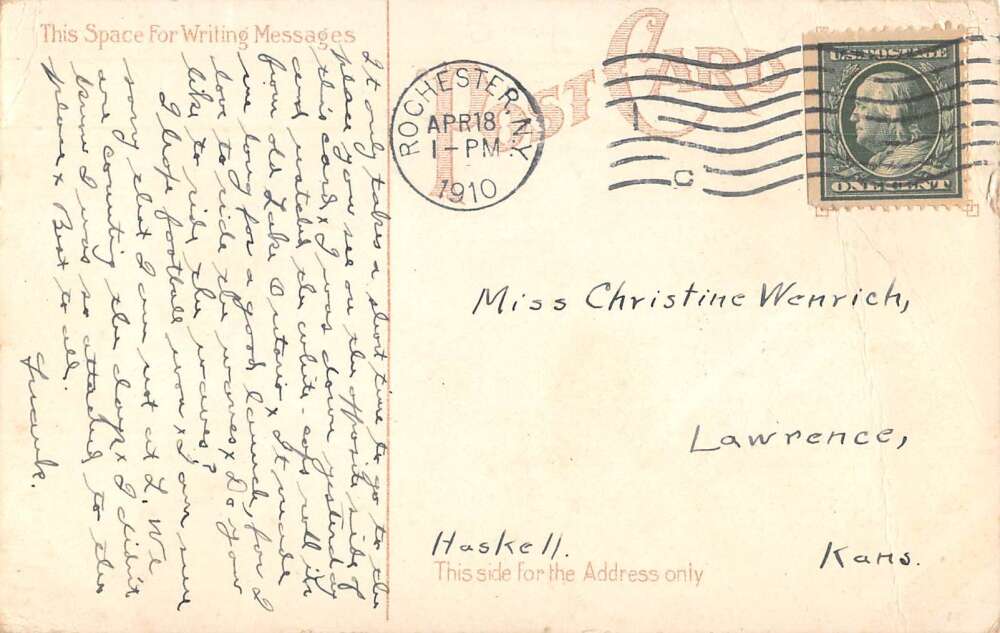 This Space For Writing Messages
POST CARD
ROCHESTER, N.Y.
APR 18
1-PM
1910
U.S. POSTAGE
ONE CENT
It only takes a short time to go to the
place you see on the opposite side of
this card x I was down yesterday
and watched the white-caps roll in
from old Lake Ontario x It made
me long for a good launch, for I
love to ride the waves x Do you
like to ride the waves?
I hope football won x I am sure
sorry that I am not at L. We
are counting the days x I didn't
know I was so attached to the
place x Best to all.
Frank.
Miss Christine Wenrich,
Lawrence,
Haskell.
Kans.
This side for the Address only